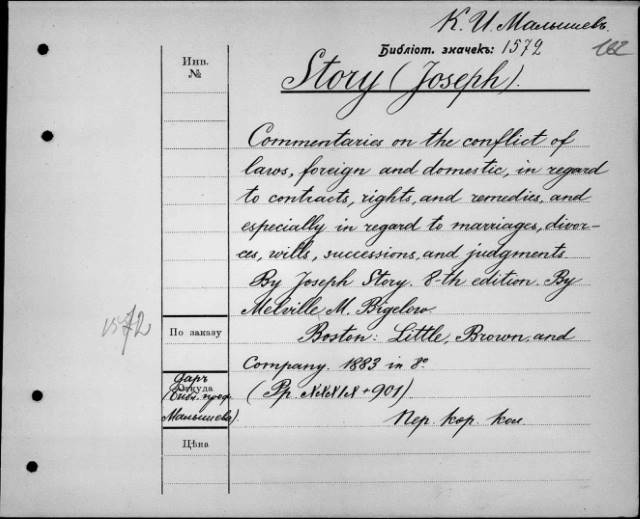 К. И. Малышевъ.
Библіот. значекъ: 1572
162
Инв.
№
Story (Joseph).
Commentaries on the conflict of
laws, foreign and domestic, in regard
to contracts, rights, and remedies, and
especially in regard to marriages, divor-
ces, wills, successions, and judgments
By Joseph Story. 8-th edition. By
Melville M. Bigelow.
1572
По заказу
Boston: Little, Brown, and
Company. 1883 in 8º
Даръ
Откуда
(Библ. проф.
Малышева).
(Pp. XXXIX + 901)
Пер. кор. кол.
Цѣна